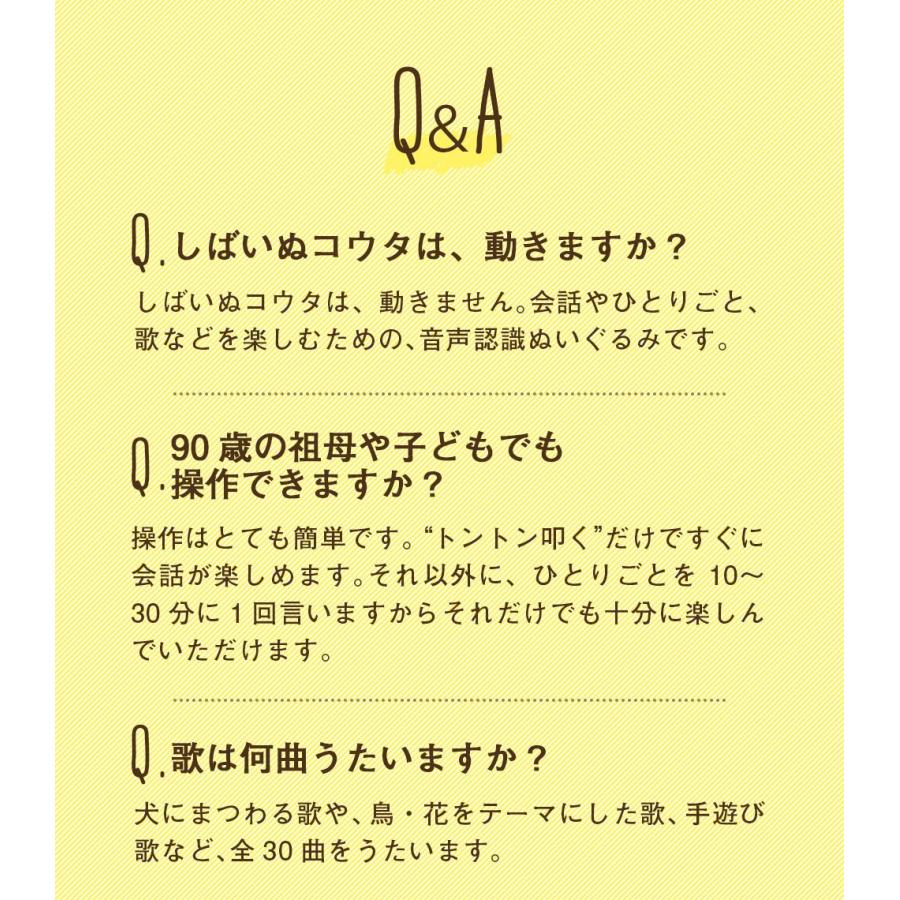 Q&A
Q.しばいぬコウタは、動きますか？
しばいぬコウタは、動きません。会話やひとりごと、
歌などを楽しむための、音声認識ぬいぐるみです。
Q.90歳の祖母や子どもでも
操作できますか？
操作はとても簡単です。“トントン叩く”だけですぐに
会話が楽しめます。それ以外に、ひとりごとを10〜
30分に1回言いますからそれだけでも十分に楽しん
でいただけます。
Q.歌は何曲うたいますか？
犬にまつわる歌や、鳥・花をテーマにした歌、手遊び
歌など、全30曲をうたいます。